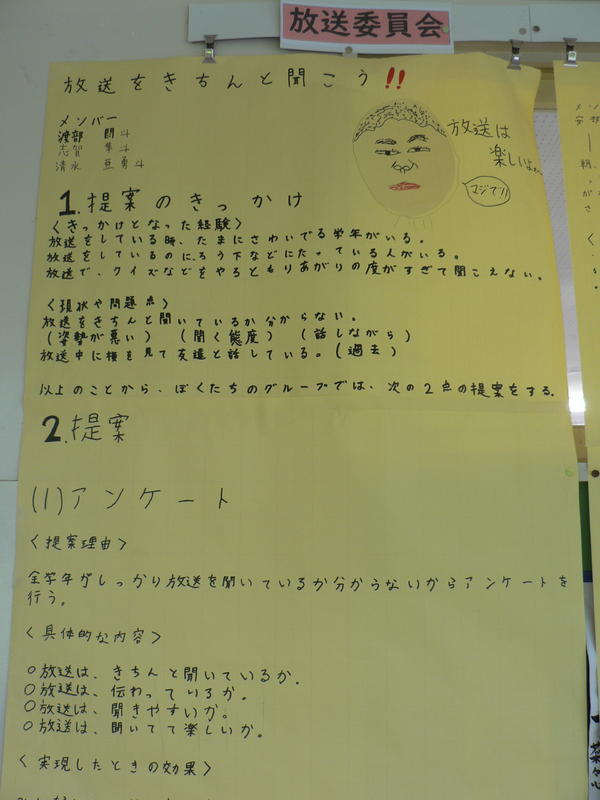 放送委員会
放送をきちんと聞こう!!
メンバー
渡部 開斗
志賀 隼斗
清水 亜勇斗
放送は
楽しいよ〜
マジで!!
1.提案のきっかけ
〈きっかけとなった経験〉
放送をしている時、たまにさわいでる学年がいる。
放送をしているのに、ろう下などにたっている人がいる。
放送で、クイズなどをやるともりあがりの度がすぎて聞こえない。
〈現状や問題点〉
放送をきちんと聞いているか分からない。
(姿勢が悪い) (聞く態度) (話しながら)
放送中に横を見て友達と話している。(過去)
以上のことから、ぼくたちのグループでは、次の2点の提案をする。
2.提案
(1)アンケート
〈提案理由〉
全学年がしっかり放送を聞いているか分からないからアンケートを
行う。
〈具体的な内容〉
○放送は、きちんと聞いているか.
○放送は、伝わっているか.
○放送は、聞きやすいか。
○放送は、聞いてて楽しいか。
〈実現したときの効果〉